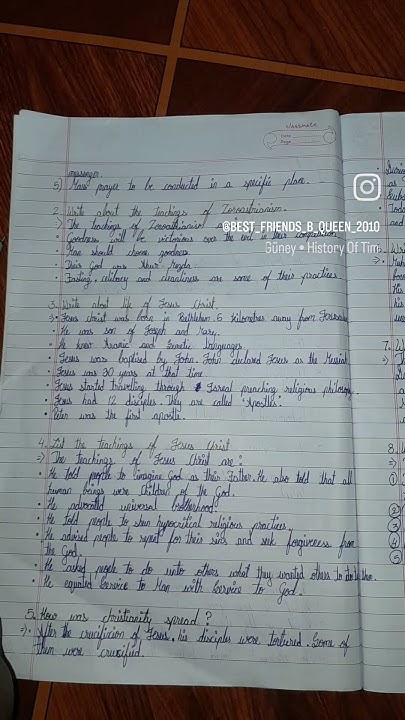 classmate
Date
Page
messenger.
5) Mass prayer to be conducted in a specific place.
2. Write about the teachings of Zoroastrianism.
⇒ The teachings of Zoroastrianism
• Goodness will be victorious over the evil in their
• Man should choose goodness.
• Their God was Ahur Mazda.
• Fasting, celibacy and cleanliness are some of their practices.
3. Write about life of Jesus Christ.
⇒ Jesus christ was born in Bethlehem. 6 kilometres away from
• He was son of Joseph and Mary.
• He knew Aramic and languages.
• Jesus was baptised by John. John declared Jesus as the Messiah.
Jesus was 30 years at that time.
• Jesus started travelling through Isreal preaching religious philosophy.
• Jesus had 12 disciples. They are called 'Apostles'.
• Peter was the first apostle.
4. List the teachings of Jesus Christ
⇒ The teachings of Jesus Christ are:
• He told people to imagine God as their Father. He also told that all
human beings were Children of the God.
• He advocated universal brotherhood.
• He told people to shun hypocritical religious practices.
• He advised people to repent for their sins and seek forgiveness from
the God.
• He asked people do unto others what they wanted others to do to them.
• He equated Service to Man with Service to God.
5. How was christianity spread?
⇒ After the crucificion of Jesus, his disciples were tortured. Some of
them were crucified.
@BEST_FRIENDS_B_QUEEN_2010
Güney • History Of Tim
7.
8.